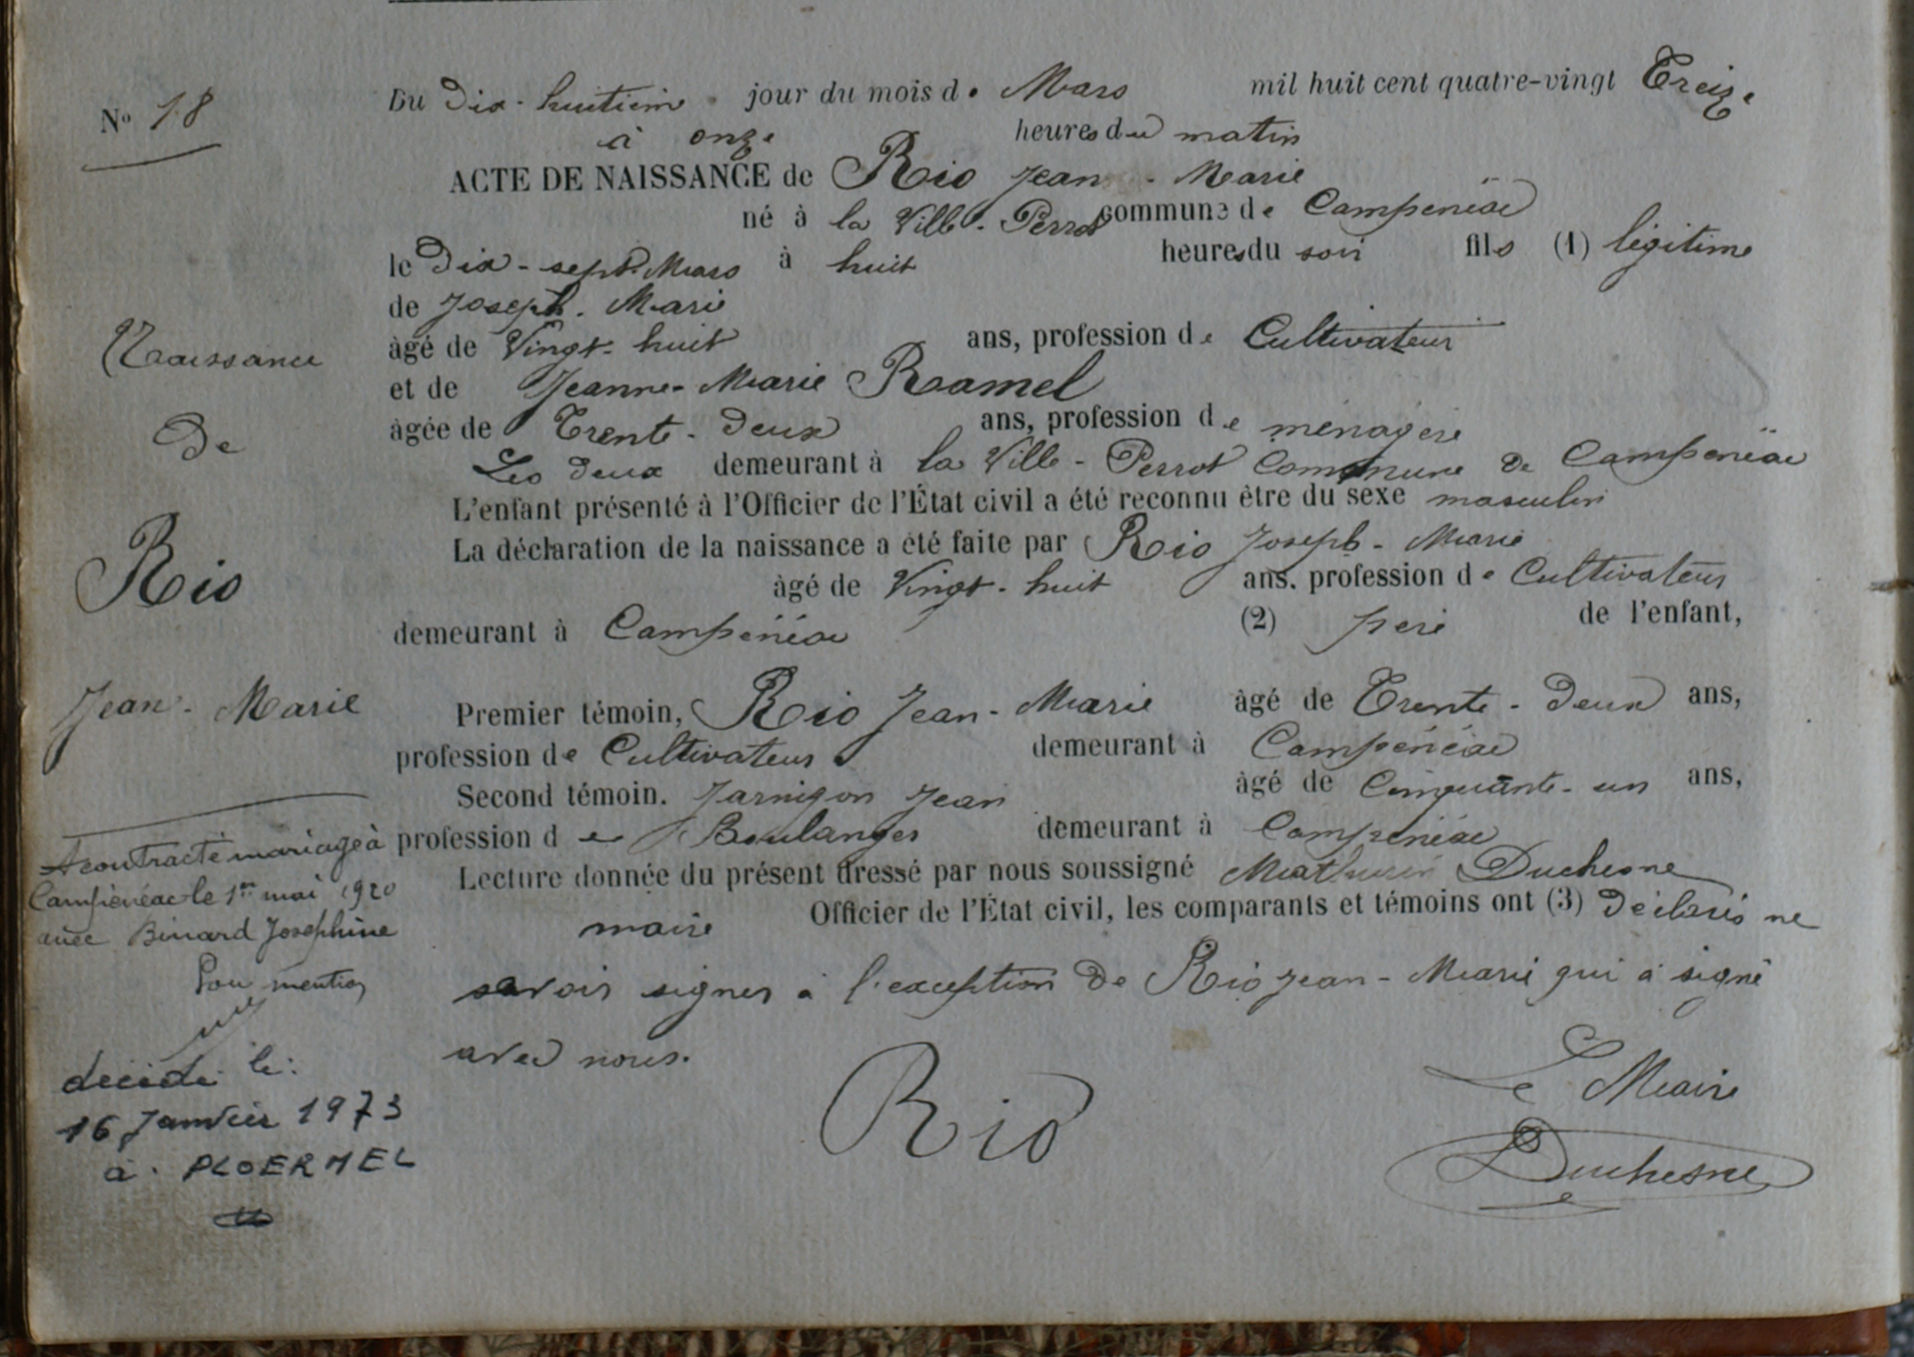 N° 18
Naissance
De
Rio
Jean-Marie
A contracté mariage à
Campénéac le 1er mai 1920
avec Binard Joséphine
Pour mention
décédé le:
16 Janvier 1973
à PLOERMEL
Du Dix-huitième jour du mois de Mars mil huit cent quatre-vingt Treize
à onze heures du matin
ACTE DE NAISSANCE de Rio Jean-Marie
né à la Ville-Perrot commune de Campénéac
le Dix-sept Mars à huit heures du soir fils (1) légitime
de Joseph-Marie
âgé de Vingt-huit ans, profession de Cultivateur
et de Jeanne-Marie Ramel
âgée de Trente-Deux ans, profession de ménagère
Les deux demeurant à la Ville-Perrot Commune de Campénéac
L'enfant présenté à l'Officier de l'État civil a été reconnu être du sexe masculin
La déclaration de la naissance a été faite par Rio Joseph-Marie
âgé de Vingt-huit ans, profession de Cultivateur
demeurant à Campénéac (2) père de l'enfant,
Premier témoin, Rio Jean-Marie âgé de Trente-Deux ans,
profession de Cultivateur demeurant à Campénéac
Second témoin. Jarnigon Jean âgé de Cinquante-un ans,
profession de Boulanger demeurant à Campénéac
Lecture donnée du présent dressé par nous soussigné Mathurin Duchesne
maire Officier de l'État civil, les comparants et témoins ont (3) Déclaré ne
savoir signer à l'exception de Rio Jean-Marie qui a signé
avec nous.
Rio
Le Maire
Duchesne